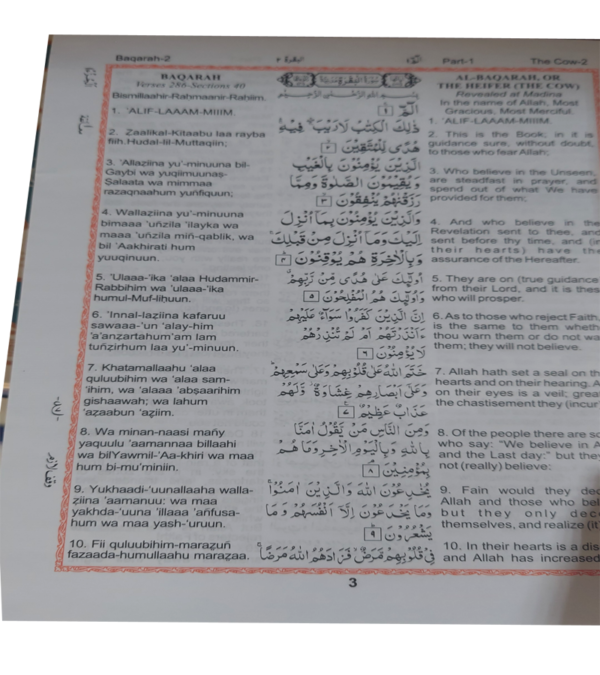 Baqarah-2
Part-1
The Cow-2
BAQARAH
Verses 286-Sections 40
Bismillaahir-Rahmaanir-Rahiim.
1. 'ALIF-LAAAM-MIIIM.
2. Zaalikal-Kitaabu laa rayba
fiih.Hudal-lil-Muttaqiin;
3. 'Allaziina yu'-minuuna bil-
Gaybi wa yuqiimuunas-
Salaata wa mimmaa
razaqnaahum yuñfiquun;
4. Wallaziina yu'-minuuna
bimaaa 'uñzila 'ilayka wa
maaa 'uñzila miñ-qablik, wa
bil 'Aakhirati hum
yuuqinuun.
5. 'Ulaaa-'ika 'alaa Hudammir-
Rabbihim wa 'ulaaa-'ika
humul-Muf-lihuun.
6. 'Innal-laziina kafaruu
sawaaa-'un 'alay-him
'a'anzartahum'am lam
tuñzirhum laa yu'-minuun.
7. Khatamallaahu 'alaa
quluubihim wa 'alaa sam-
'ihim, wa 'alaaa 'absaarihim
gishaawah; wa lahum
'azaabun 'aziim.
8. Wa minan-naasi mañy
yaquulu 'aamannaa billaahi
wa bilYawmil-'Aa-khiri wa maa
hum bi-mu'miniin.
9. Yukhaadi-'uunallaaha walla-
ziina 'aamanuu: wa maa
yakhda-'uuna 'illaaa 'añfusa-
hum wa maa yash-'uruun.
10. Fii quluubihim-marazuñ
fazaada-humullaahu marazaa.
الٓمّٓ ١
ذٰلِكَ الْكِتٰبُ لَا رَيْبَ ۛ فِيْهِ ۛ
هُدًى لِّلْمُتَّقِيْنَ ٢
الَّذِيْنَ يُؤْمِنُوْنَ بِالْغَيْبِ
وَيُقِيْمُوْنَ الصَّلٰوةَ وَمِمَّا
رَزَقْنٰهُمْ يُنْفِقُوْنَ ٣
وَالَّذِيْنَ يُؤْمِنُوْنَ بِمَآ اُنْزِلَ
اِلَيْكَ وَمَآ اُنْزِلَ مِنْ قَبْلِكَ ۚ
وَبِالْاٰخِرَةِ هُمْ يُوْقِنُوْنَ ٤
اُولٰٓئِكَ عَلٰى هُدًى مِّنْ رَّبِّهِمْ ۗ
وَاُولٰٓئِكَ هُمُ الْمُفْلِحُوْنَ ٥
اِنَّ الَّذِيْنَ كَفَرُوْا سَوَآءٌ عَلَيْهِمْ
ءَاَنْذَرْتَهُمْ اَمْ لَمْ تُنْذِرْهُمْ
لَا يُؤْمِنُوْنَ ٦
خَتَمَ اللّٰهُ عَلٰى قُلُوْبِهِمْ وَعَلٰى سَمْعِهِمْ ۗ
وَعَلٰٓى اَبْصَارِهِمْ غِشَاوَةٌ ۖ وَّلَهُمْ
عَذَابٌ عَظِيْمٌ ٧
وَمِنَ النَّاسِ مَنْ يَّقُوْلُ اٰمَنَّا
بِاللّٰهِ وَبِالْيَوْمِ الْاٰخِرِ وَمَا هُمْ
بِمُؤْمِنِيْنَ ٨
يُخٰدِعُوْنَ اللّٰهَ وَالَّذِيْنَ اٰمَنُوْا ۚ
وَمَا يَخْدَعُوْنَ اِلَّآ اَنْفُسَهُمْ وَمَا
يَشْعُرُوْنَ ٩
فِيْ قُلُوْبِهِمْ مَّرَضٌ ۙ فَزَادَهُمُ اللّٰهُ مَرَضًا ۚ
AL-BAQARAH, OR
THE HEIFER (THE COW)
Revealed at Madina
In the name of Allah, Most
Gracious, Most Merciful.
1. 'ALIF-LAAAM-MIIIM.
2. This is the Book; in it is
guidance sure, without doubt,
to those who fear Allah;
3. Who believe in the Unseen,
are steadfast in prayer, and
spend out of what We have
provided for them;
4. And who believe in the
Revelation sent to thee, and
sent before thy time, and (in
their hearts) have the
assurance of the Hereafter.
5. They are on (true guidance
from their Lord, and it is thes
who will prosper.
6. As to those who reject Faith,
it is the same to them wheth
thou warn them or do not wa
them; they will not believe.
7. Allah hath set a seal on th
hearts and on their hearing. A
on their eyes is a veil; grea
the chastisement they (incur
8. Of the people there are so
who say: "We believe in A
and the Last day:" but they
not (really) believe:
9. Fain would they dec
Allah and those who bel
but they only dece
themselves, and realize (it
10. In their hearts is a dis
and Allah has increased
3